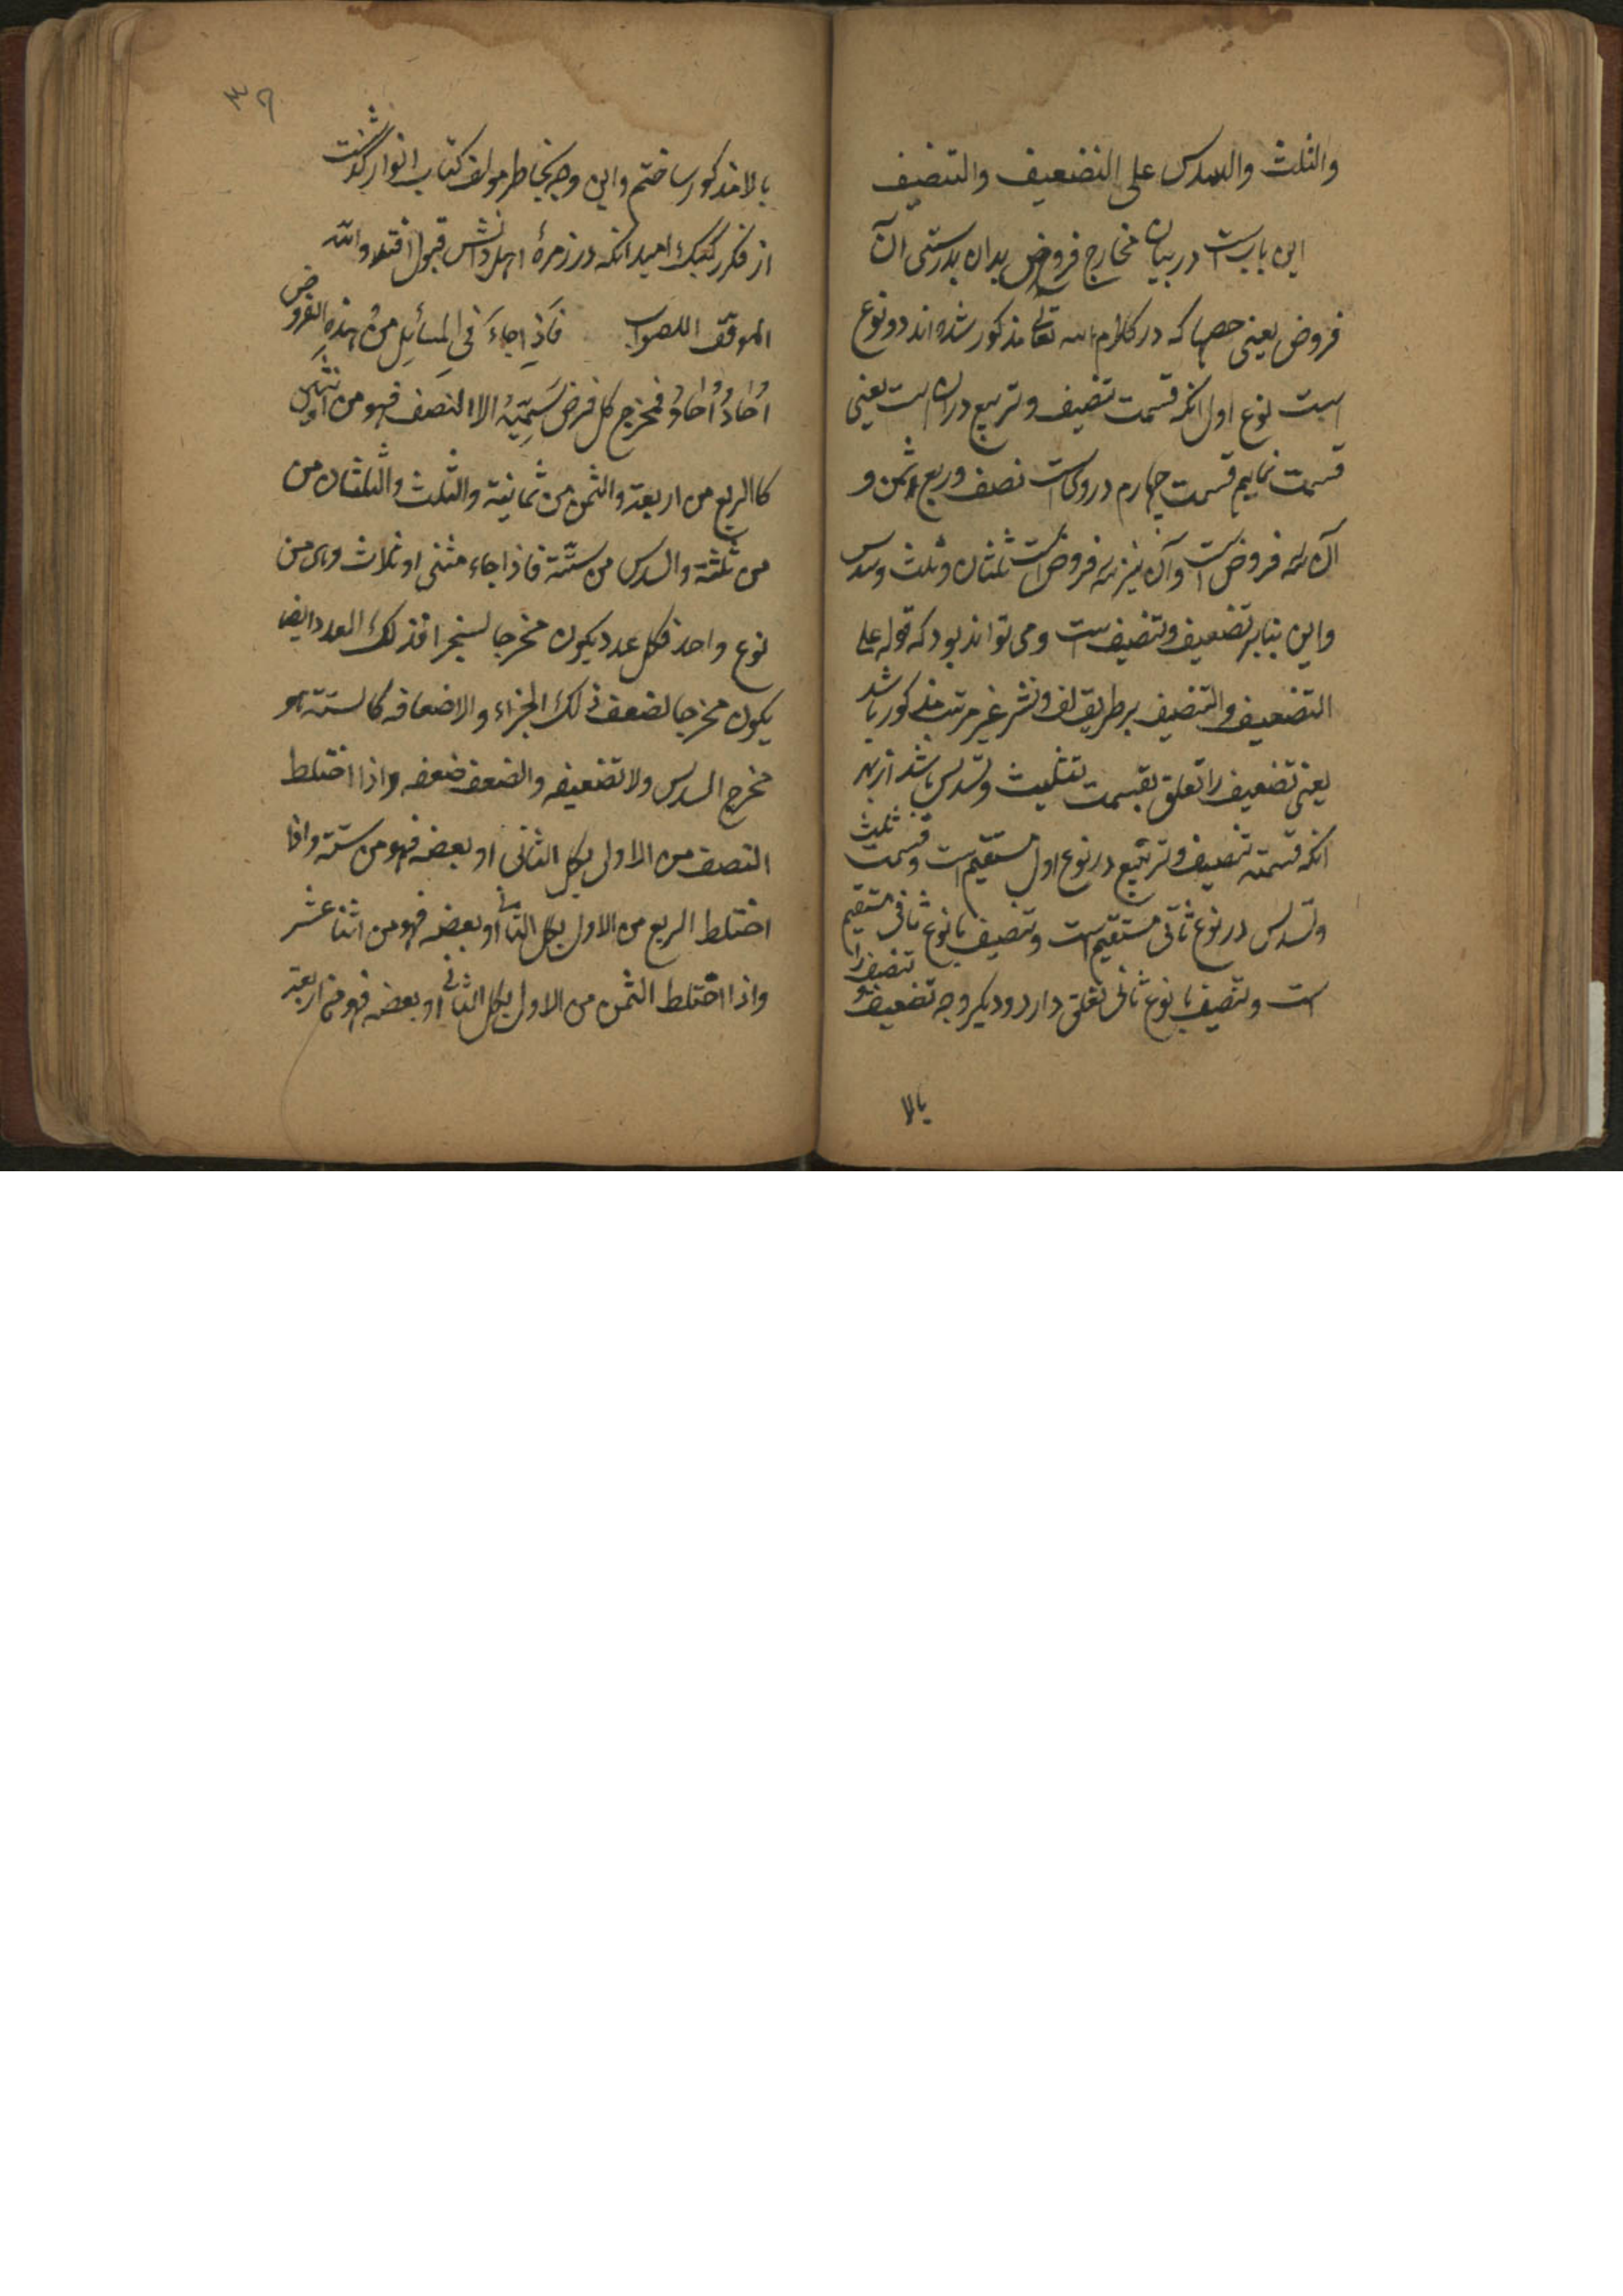 والثلث والسدس علی التضعیف والتنصیف
این باب است در بیان مخارج فروض بدان بدرستی آن
فروض یعنی حصها که در کلام الله تعالی مذکور شده اند دو نوع
است نوع اول آنکه قسمت تنصیف و تربیع در ان است یعنی
قسمت نماییم قسمت چهارم در وی است نصف و ربع و ثمن و
آن سه فروض است وآن نیز سه فروض است ثلثان و ثلث و سدس
و این بنابر تضعیف و تنصیف است و می تواند بود که قوله علی
التضعیف والتنصیف بر طریق لف و نشر غیر مرتب مذکور باشد
یعنی تضعیف را تعلق بقسمت تثلیث و تسدیس باشد از بهر
آنکه قسمة تنصیف و تربیع در نوع اول مستقیم است و قسمت ثلیث
و تسدیس در نوع ثانی مستقیم است و تنصیف با نوع ثانی مستقیم
است و تنصیف با نوع ثانی تعلق دارد و دیگر وجه تضعیف و تنصیف را
بالا
۳۹
بالا مذکور ساختم و این وجه بخاطر مولف کتاب انوار گذشت
از فکر رکیک امید آنکه در زمرهٔ اهل دانش قبول افتد والله
الموفق اللصواب فَاذِا جاءَ فی المسائِلِ مِن هذه الفروض
اُحادُ اُحادُ فمخرج کل فرض سَمِیّهُ الا النصف فهو من اثنین
کالربع من اربعة والثمن من ثمانیة والثلث والثلثان من
من ثلثة والسدس من ستّة فاذا جاء مثنی او ثلاث وهی من
نوع واحد فکل عدد یکون مخرجا لسجزا فذلک العدد ایضا
یکون مخرجا لضعف ذلک الجزاء والاضعافه کالستة هو
مخرج السدس ولا تضعیفه والضعف ضعفه واذا اختلط
النصف من الاولی بکل الثانی او بعضه فهو من ستة واذا
اختلط الربع من الاول بکل الثانی او بعضه فهو من اثنا عشر
واذا اختلط الثمن من الاول بکل الثانی او بعضه فهو من اربعة